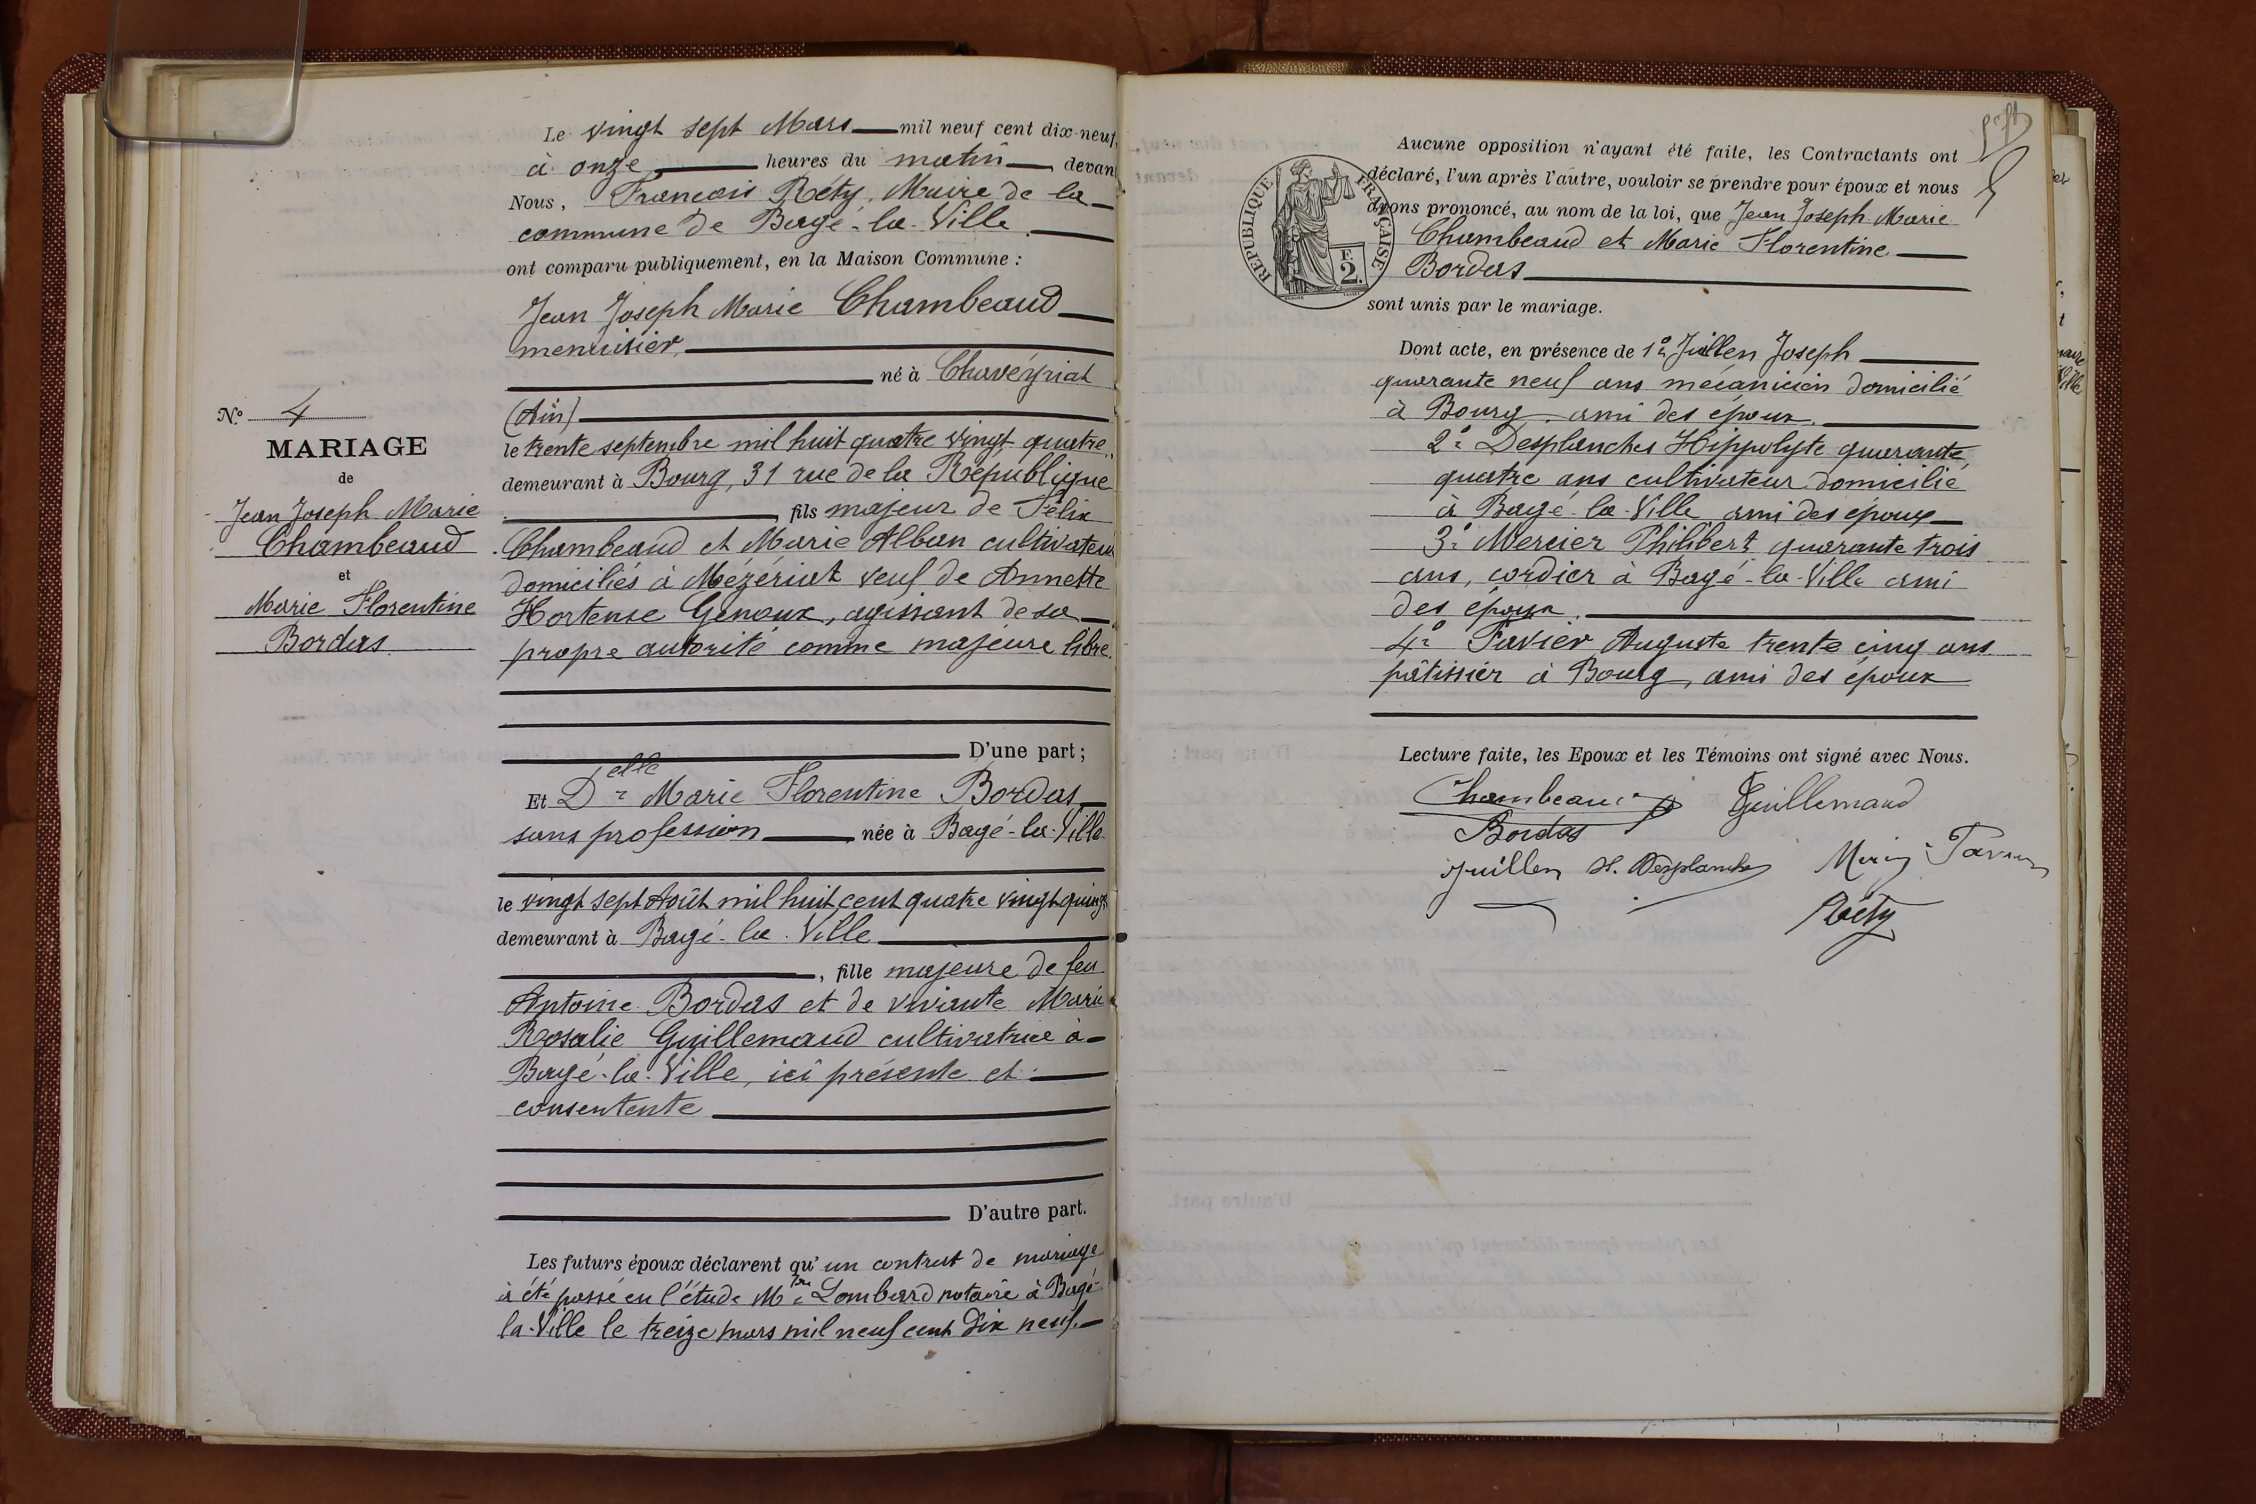 N° 4
MARIAGE
de
Jean Joseph Marie
Chambeaud
et
Marie Florentine
Bordas
Le vingt sept Mars mil neuf cent dix-neuf,
à onze heures du matin, devan
Nous, Francois Réty, Maire de la
commune de Bagé-la-Ville
ont comparu publiquement, en la Maison Commune :
Jean Joseph Marie Chambeaud
menuisier,
né à Chaveyriat
(Ain)
le trente septembre mil huit quatre vingt quatre
demeurant à Bourg, 31 rue de la République
, fils majeur de Félix
Chambeaud et Marie Alban cultivateurs
domiciliés à Mézériat veuf de Annette
Hortense Genoux, agissant de sa
propre autorité comme majeure libre.
D'une part ;
Et Delle Marie Florentine Bordas
sans profession, née à Bagé-la-Ville
le vingt sept Août mil huit cent quatre vingt quinze
demeurant à Bagé-la-Ville
, fille majeure de feu
Antoine Bordas et de vivante Marie
Rosalie Guillemaud cultivatrice à
Bagé-la-Ville, ici présente et
consentente
D'autre part.
Les futurs époux déclarent qu'un contrat de mariage
à été passé en l'étude Mtre Lombard notaire à Bagé-
la-Ville le treize mars mil neuf cent dix neuf.
REPUBLIQUE FRANÇAISE
F.
2.
Aucune opposition n'ayant été faite, les Contractants ont
déclaré, l'un après l'autre, vouloir se prendre pour époux et nous
avons prononcé, au nom de la loi, que Jean Joseph Marie
Chambeaud et Marie Florentine
Bordas
sont unis par le mariage.
Dont acte, en présence de 1° Juillen Joseph
quarante neuf ans mécanicien domicilié
à Bourg, ami des époux.
2° Desplanches Hippolyte quarante
quatre ans cultivateur domicilié
à Bagé-la-Ville ami des époux
3° Mercier Philibert quarante trois
ans, cordier à Bagé-la-Ville ami
des époux.
4° Favier Auguste trente cinq ans
pâtissier à Bourg, ami des époux
Lecture faite, les Epoux et les Témoins ont signé avec Nous.
Chambeaud Guillemaud
Bordas
Juillen H. Desplanches
Réty